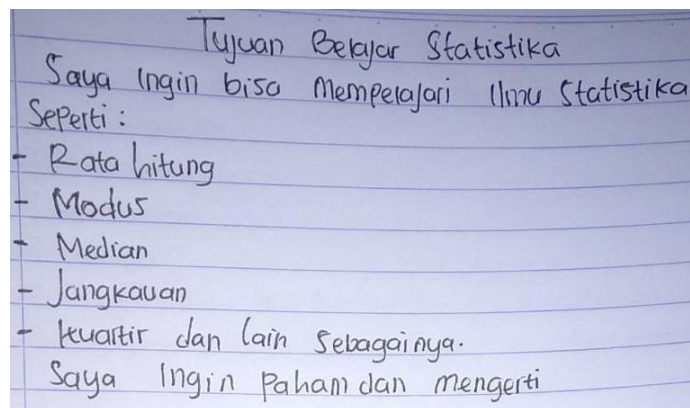 Tujuan Belajar Statistika
Saya Ingin bisa Mempelajari Ilmu Statistika
Seperti :
- Rata hitung
- Modus
- Median
- Jangkauan
- Kuartir dan lain sebagainya.
Saya Ingin Paham dan mengerti